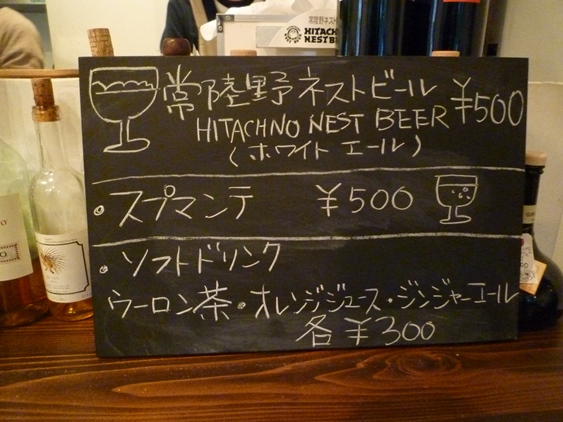 常陸野ネスト
HITACHI
NEST BE
常陸野ネストビール ¥500
HITACHNO NEST BEER
(ホワイト エール)
・スプマンテ ¥500
・ソフトドリンク
ウーロン茶・オレンジジュース・ジンジャーエール
各 ¥300